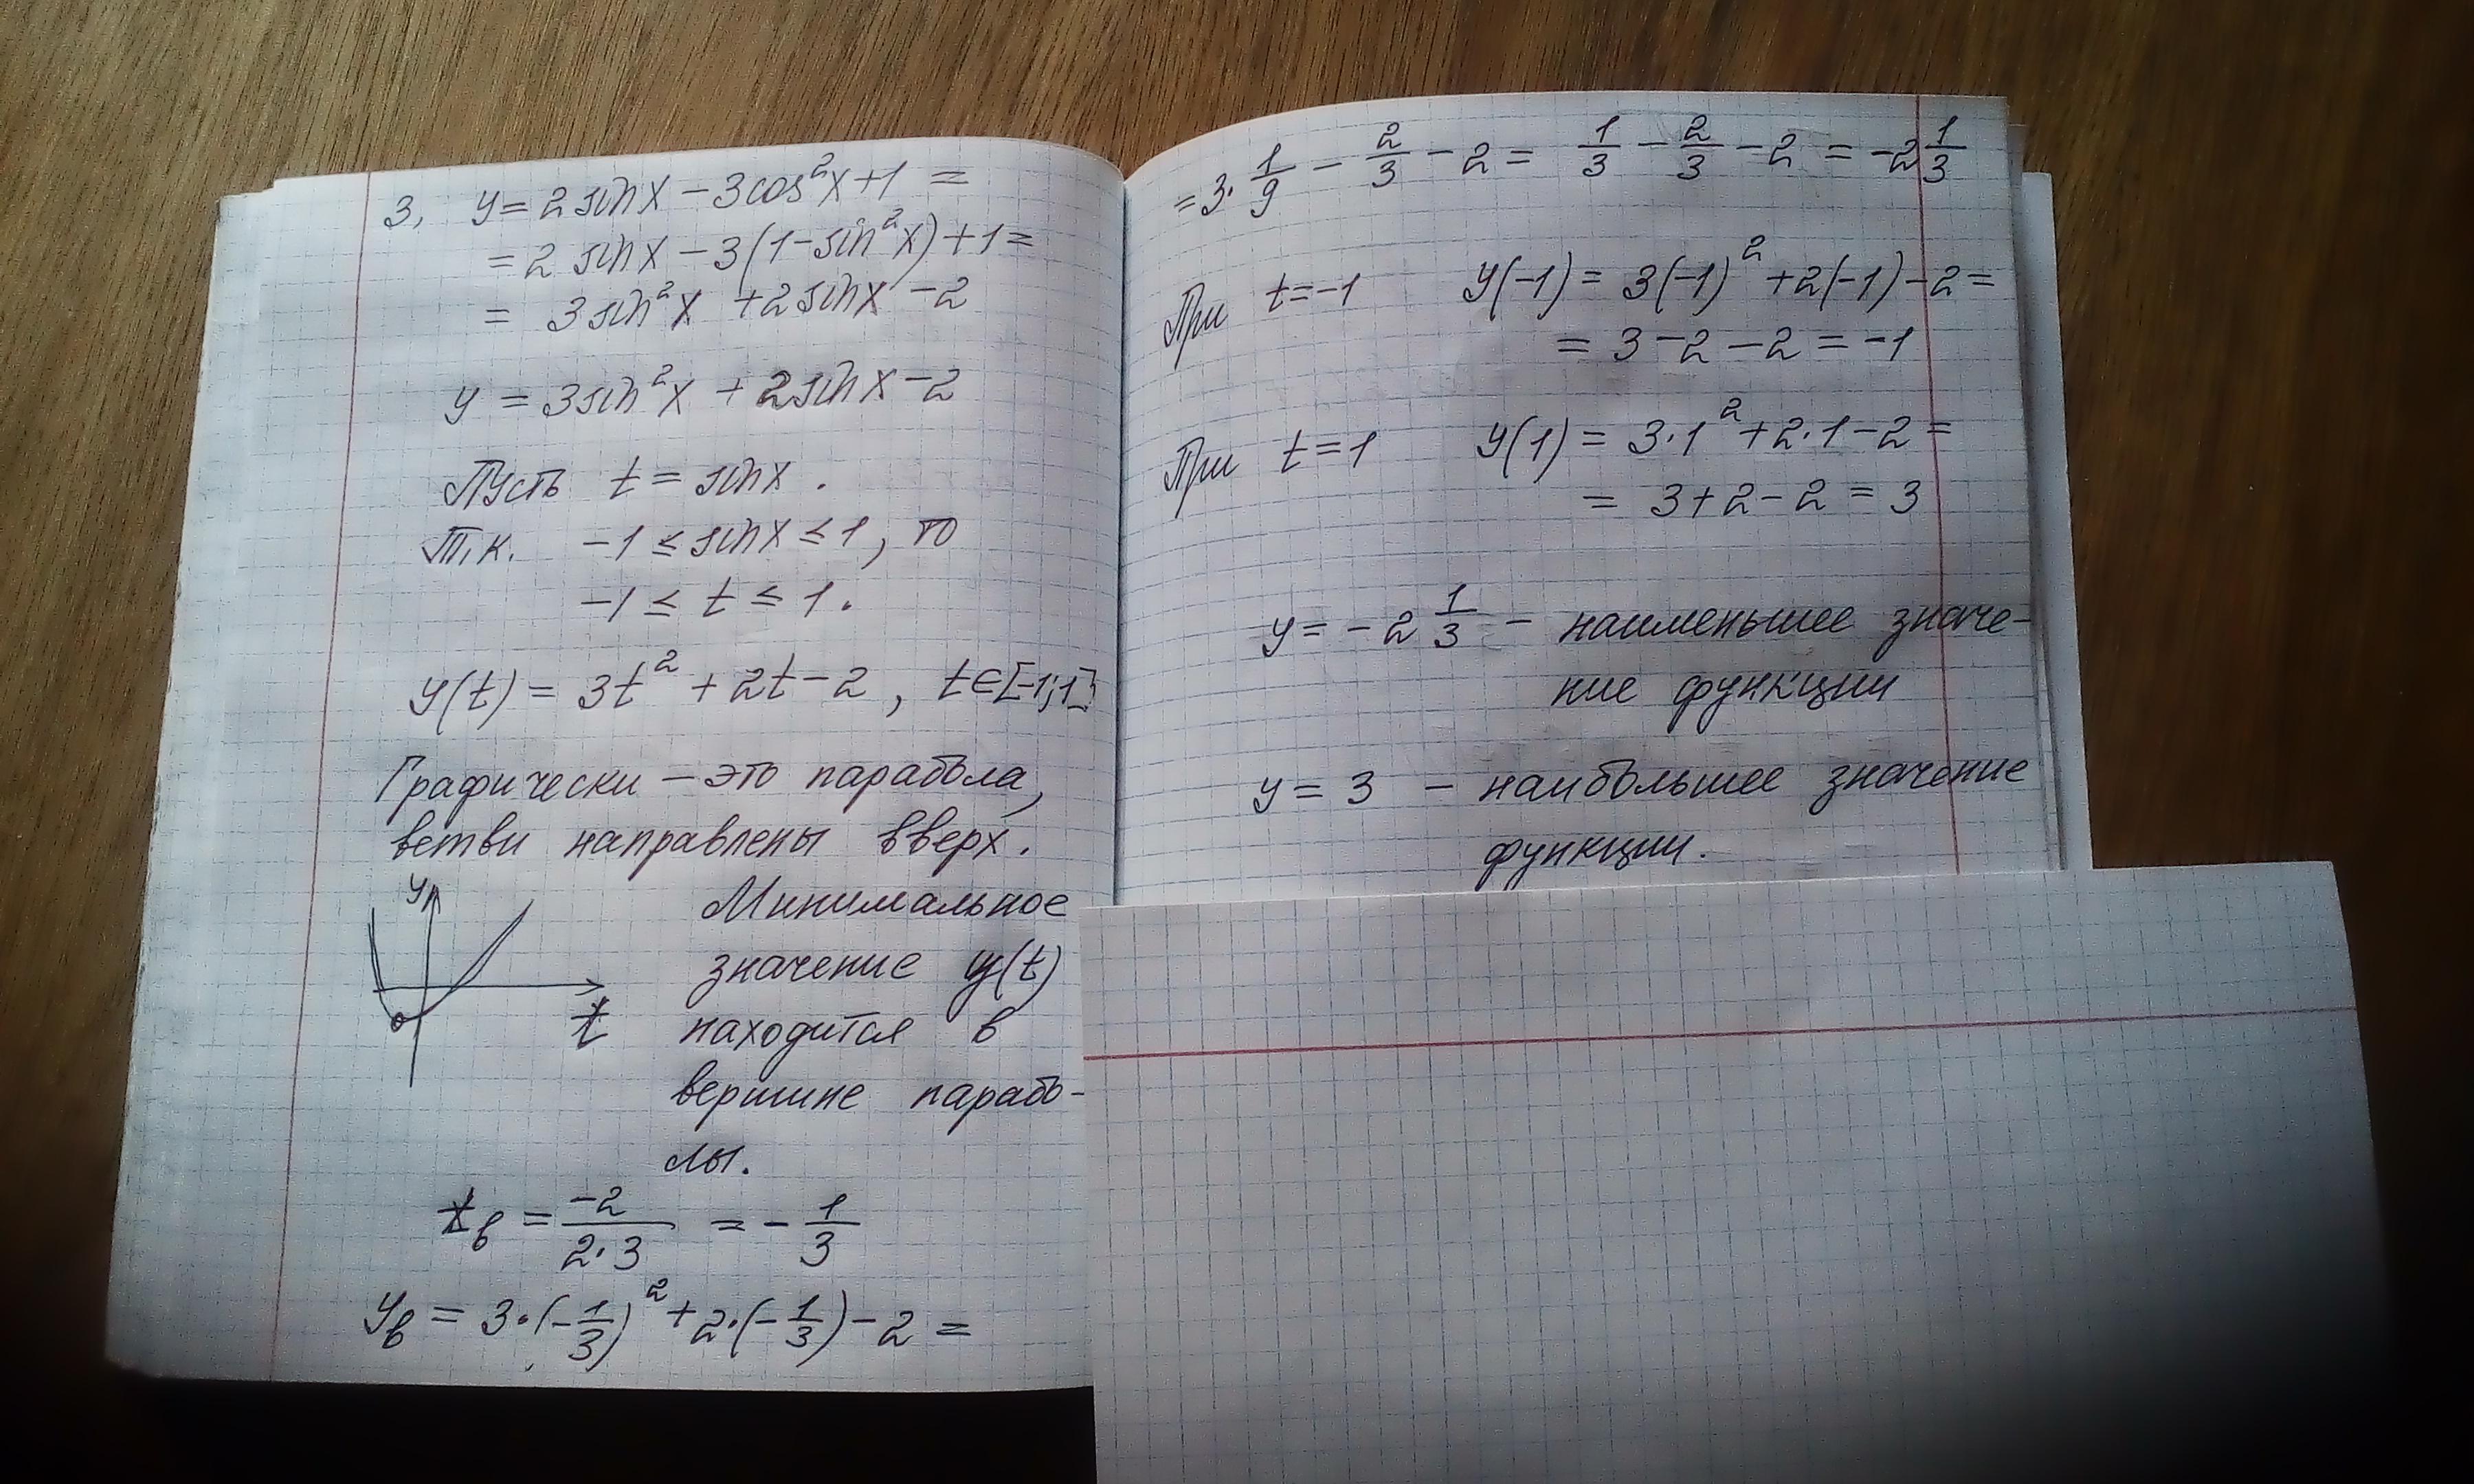 3, y = 2 sin x − 3cos²x + 1 =
= 2 sin x − 3(1 − sin²x) + 1 =
= 3 sin²x + 2 sin x − 2
y = 3 sin²x + 2 sin x − 2
Пусть t = sin x .
Т.к. −1 ≤ sin x ≤ 1, то
−1 ≤ t ≤ 1.
y(t) = 3t² + 2t − 2, t∈[−1;1]
Графически – это парабола,
ветви направлены вверх.
y
t
Минимальное
значение y(t)
находится в
вершине парабо-
лы.
t_в = \frac{−2}{2·3} = −\frac{1}{3}
y_в = 3·(−\frac{1}{3})² + 2·(−\frac{1}{3}) − 2 =
= 3·\frac{1}{9} − \frac{2}{3} − 2 = \frac{1}{3} − \frac{2}{3} − 2 = −2\frac{1}{3}
При t = −1 y(−1) = 3(−1)² + 2(−1) − 2 =
= 3 − 2 − 2 = −1
При t = 1 y(1) = 3·1² + 2·1 − 2 =
= 3 + 2 − 2 = 3
y = −2\frac{1}{3} – наименьшее значе-
ние функции
y = 3 – наибольшее значение
функции.